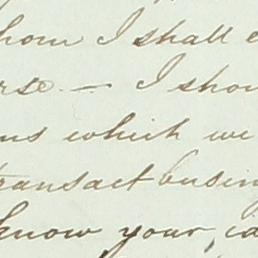 whom I shall
rse. — I shou
ns which we
transact busin
know your, ca